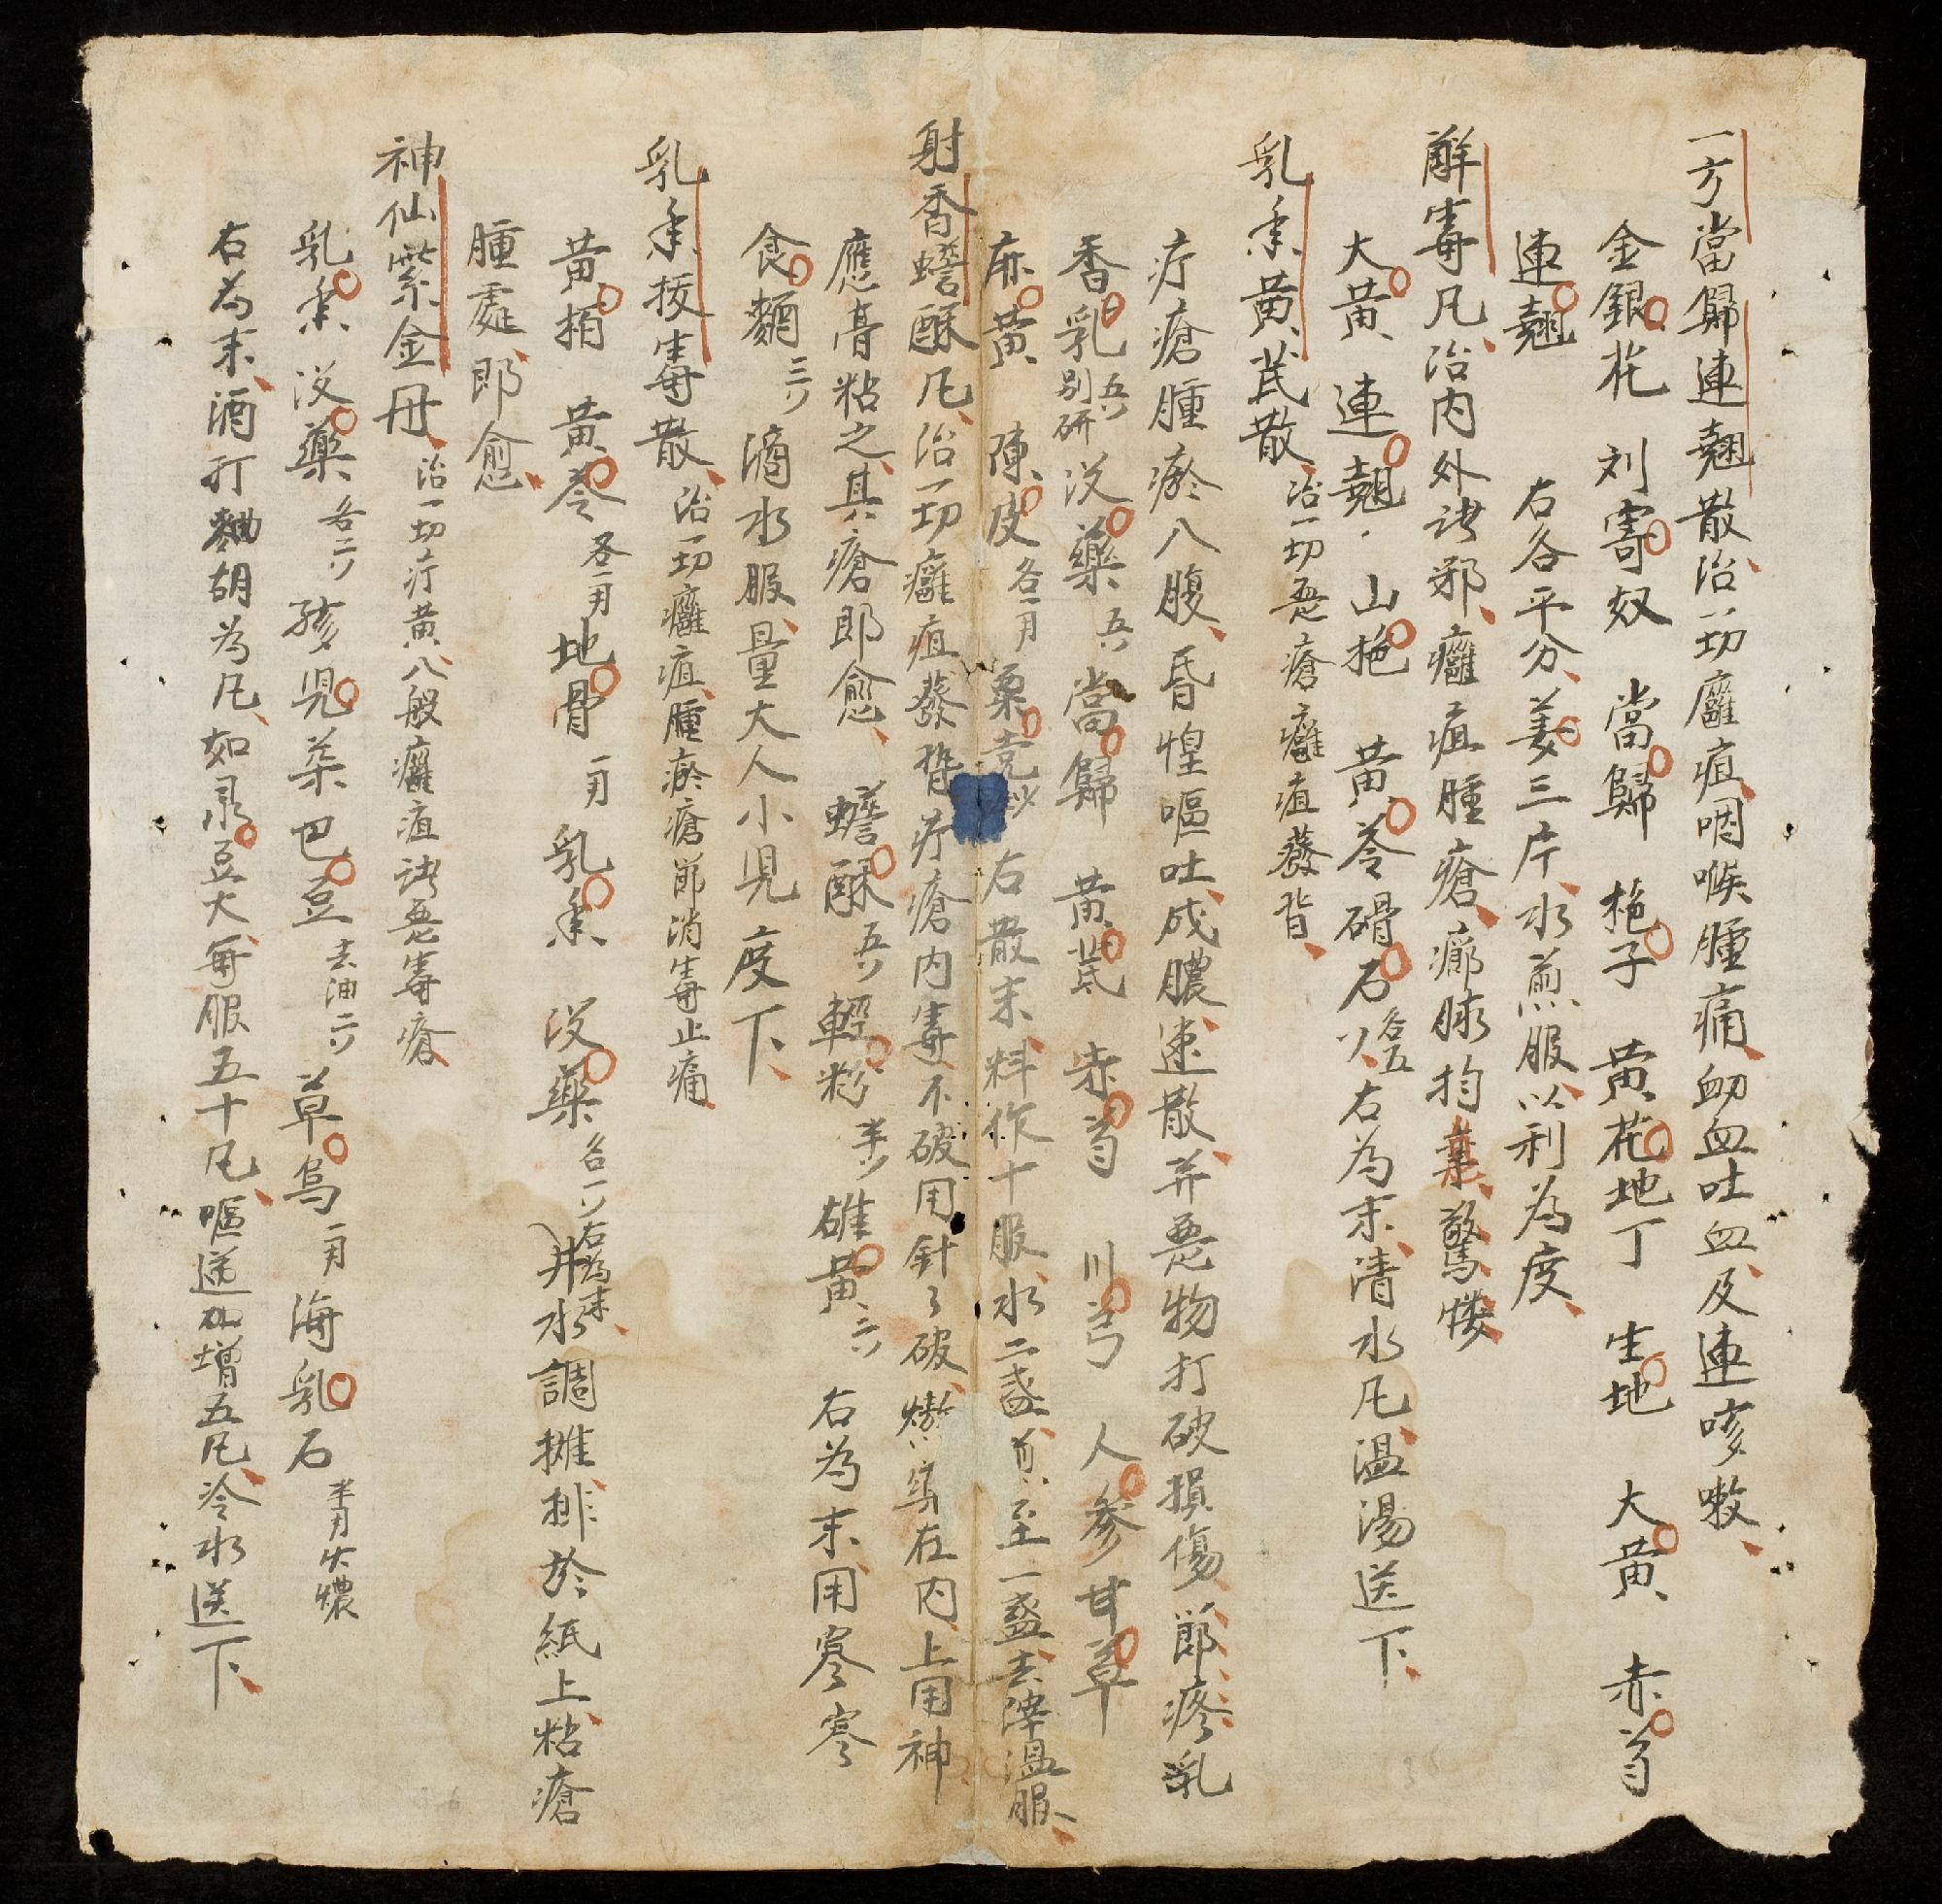 一方當歸連翹散治一切癰疽咽喉腫痛衂血吐血及連咳嗽
金銀花 刘寄奴 當歸 梔子 黃花地丁 生地 大黃 赤芍
連翹 右各平分姜三片水煎服以利為度
觧毒凡治内外诸邪癰疽腫瘡癤
大黃 連翹 山梔 黃芩 磆石各五 右為末清水凡温湯送下
乳香黃芪散治一切恶瘡癰疽發背
疔瘡腫瘀八腹昏惶嘔吐成膿速散并恶物打破損傷節疼乳
香乳五别研没藥五 當歸 黃芪 赤芍 川弓 人參 甘草
麻黃 陳皮各一 粟壳炒 右散末料作十服水二盏煎至一盏去滓温服
射香蟾酥凡治一切癰疽發背疔瘡内毒不破用針々破在内上用神
應膏粘之其瘡即愈 蟾酥五 輕粉半 雄黃二 右為末用寒
食麵三 滴水服量大人小児度下
乳香拔毒散治一切癰疽腫瘀瘡節消毒止痛
黃栢 黃芩各一 地骨一 乳香 没藥各一右為末井水調攤排於紙上粘瘡
腫處即愈
神仙紫金丹治一切疔黃八般癰疽诸恶毒瘡
乳香 没藥各二 孩児茶 巴豆去油二 草烏一 海乳石半
右為末酒打麯胡為凡如菉豆大每服五十凡嘔逆加增五凡冷水送下